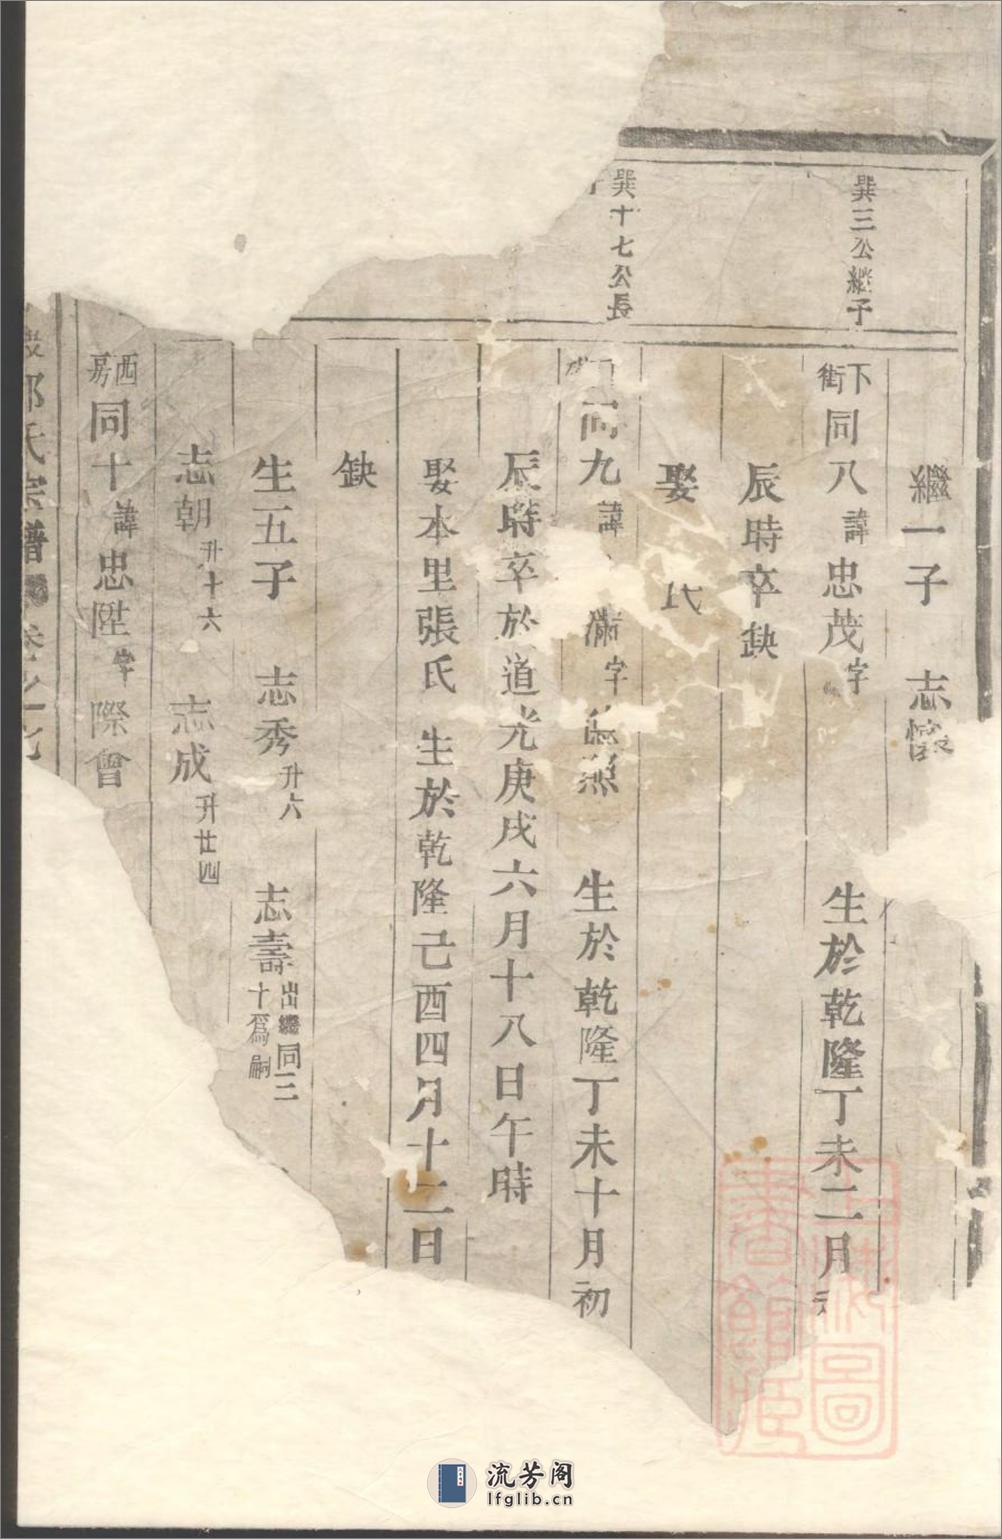 繼一子 志懷
巽三公繼子
下街同八諱忠茂字 生於乾隆丁未二月
辰時卒缺
娶 氏
巽十七公長
同九諱 滿字 照 生於乾隆丁未十月初
辰時卒於道光庚戌六月十八日午時
娶本里張氏 生於乾隆己酉四月十二日
缺
生五子 志秀升六 志壽出繼同三十爲嗣
志朝升十六 志成升廿四
西房同十諱忠陞字際會
氏宗譜
圖書館
流芳阁
lfglib.cn